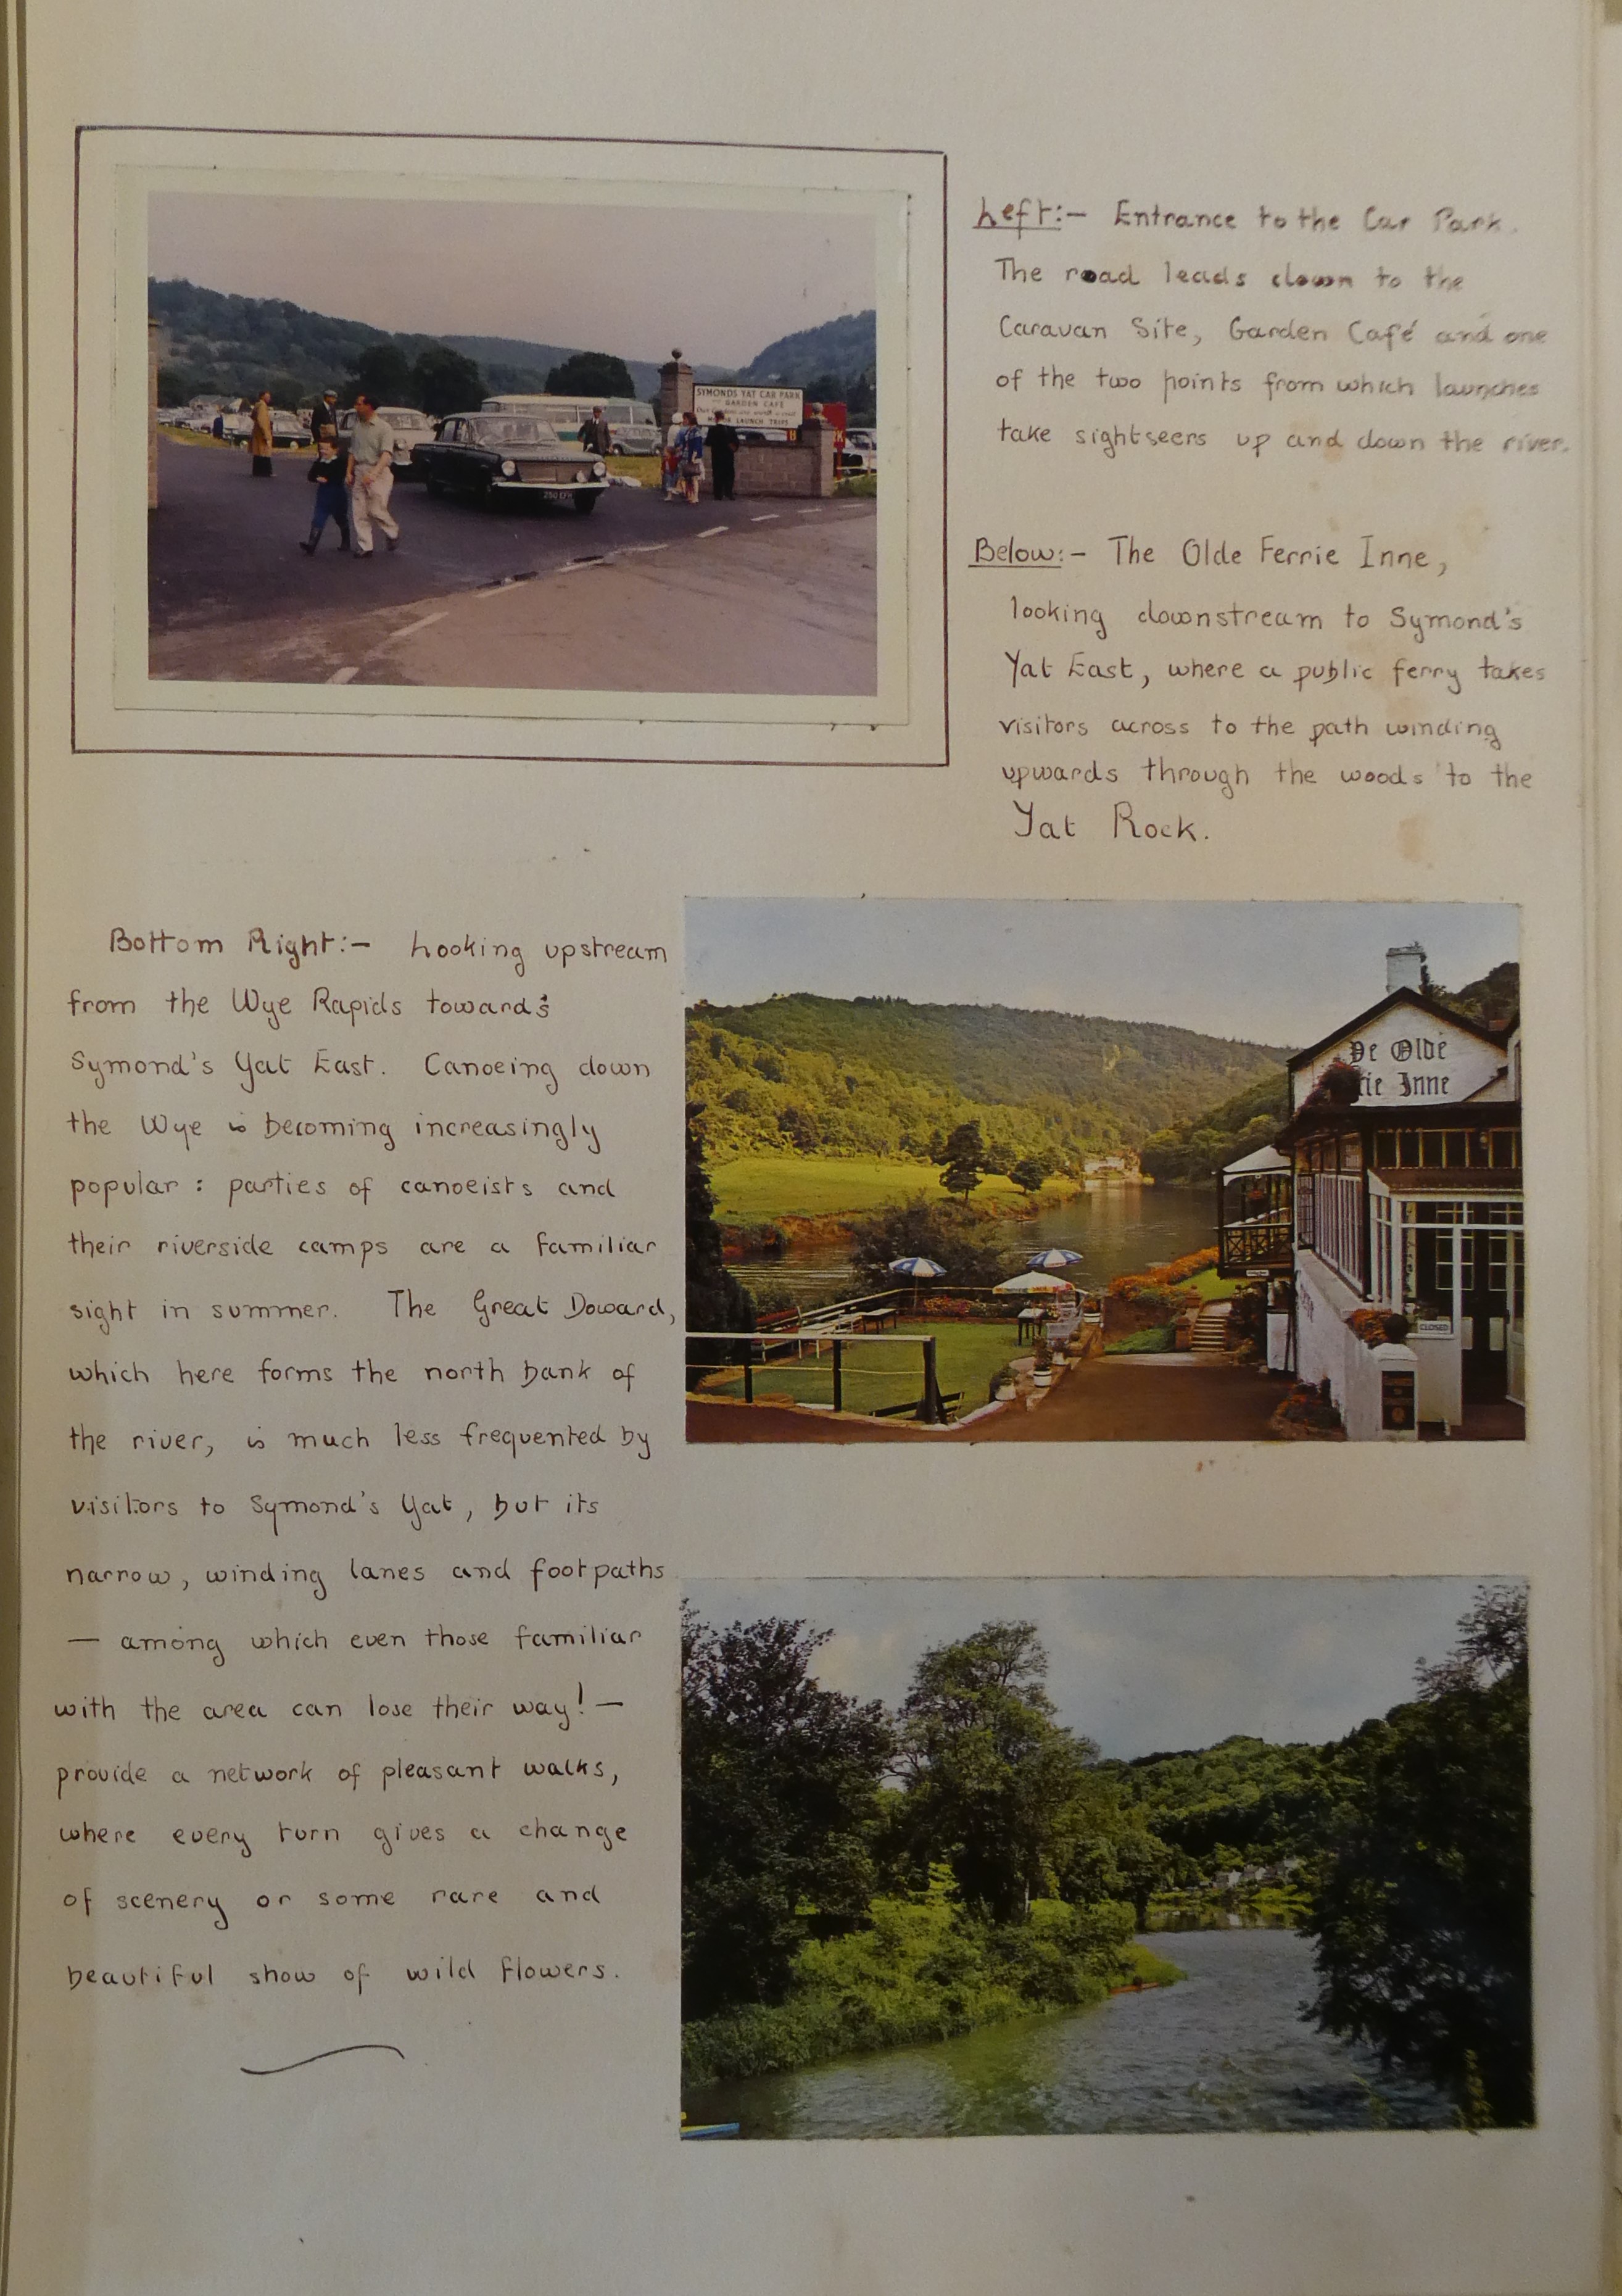 Left:- Entrance to the Car Park.
The road leads down to the
Caravan Site, Garden Café and one
of the two points from which launches
take sightseers up and down the river.
SYMONDS YAT CAR PARK
GARDEN CAFE
LAUNCH TRIPS
Below:- The Olde Ferrie Inne,
looking downstream to Symond's
Yat East, where a public ferry takes
visitors across to the path winding
upwards through the woods to the
Yat Rock.
Bottom Right:- Looking upstream
from the Wye Rapids towards
Symond's Yat East. Canoeing down
the Wye is becoming increasingly
popular: parties of canoeists and
their riverside camps are a familiar
sight in summer. The Great Doward,
which here forms the north bank of
the river, is much less frequented by
visitors to Symond's Yat, but its
narrow, winding lanes and footpaths
— among which even those familiar
with the area can lose their way! —
provide a network of pleasant walks,
where every turn gives a change
of scenery or some rare and
beautiful show of wild flowers.
Ye Olde
rie Inne
CLOSED